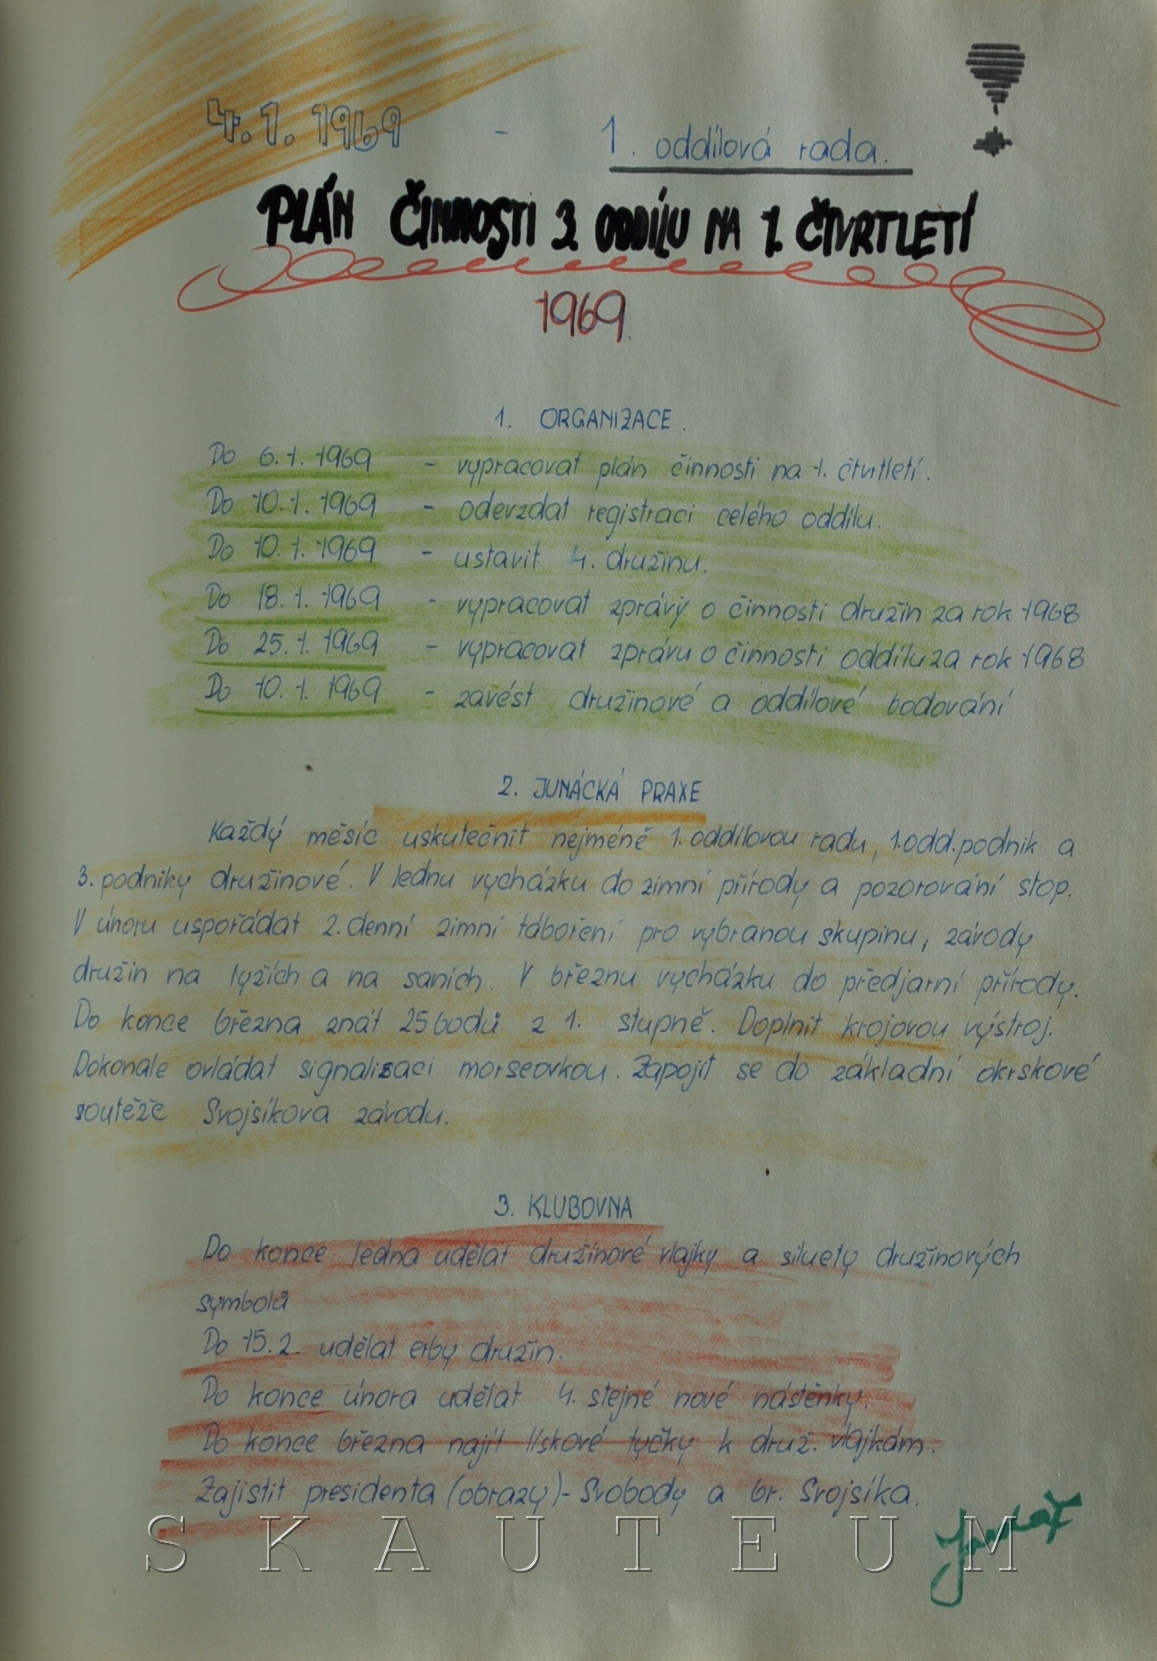 4.1.1969 - 1. oddílová rada.
PLÁN ČINNOSTI 3. ODDÍLU NA 1. ČTVRTLETÍ
1969.
1. ORGANIZACE.
Do 6.1.1969 - vypracovat plán činnosti na 1. čtvrtletí.
Do 10.1.1969 - odevzdat registraci celého oddílu.
Do 10.1.1969 - ustavit 4. družinu.
Do 18.1.1969 - vypracovat zprávy o činnosti družin za rok 1968
Do 25.1.1969 - vypracovat zprávu o činnosti oddílu za rok 1968
Do 10.1.1969 - zavést družinové a oddílové bodování
2. JUNÁCKÁ PRAXE
Každý měsíc uskutečnit nejméně 1. oddílovou radu, 1. odd. podnik a
3. podniky družinové. V lednu vycházku do zimní přírody a pozorování stop.
V únoru uspořádat 2. denní zimní táboření pro vybranou skupinu, závody
družin na lyžích a na saních. V březnu vycházku do předjarní přírody.
Do konce března znát 25 bodů z 1. stupně. Doplnit krojovou výstroj.
Dokonale ovládat signalisaci morseovkou. Zapojit se do základní okrskové
soutěže Svojsíkova závodu.
3. KLUBOVNA
Do konce ledna udělat družinové vlajky a siluety družinových
symbolů
Do 15.2. udělat erby družin.
Do konce února udělat 4. stejné nové nástěnky.
Do konce března najít lískové tyčky k druž. vlajkám.
Zajistit presidenta (obrazy) - Svobody a br. Svojsíka.
SKAUTEUM